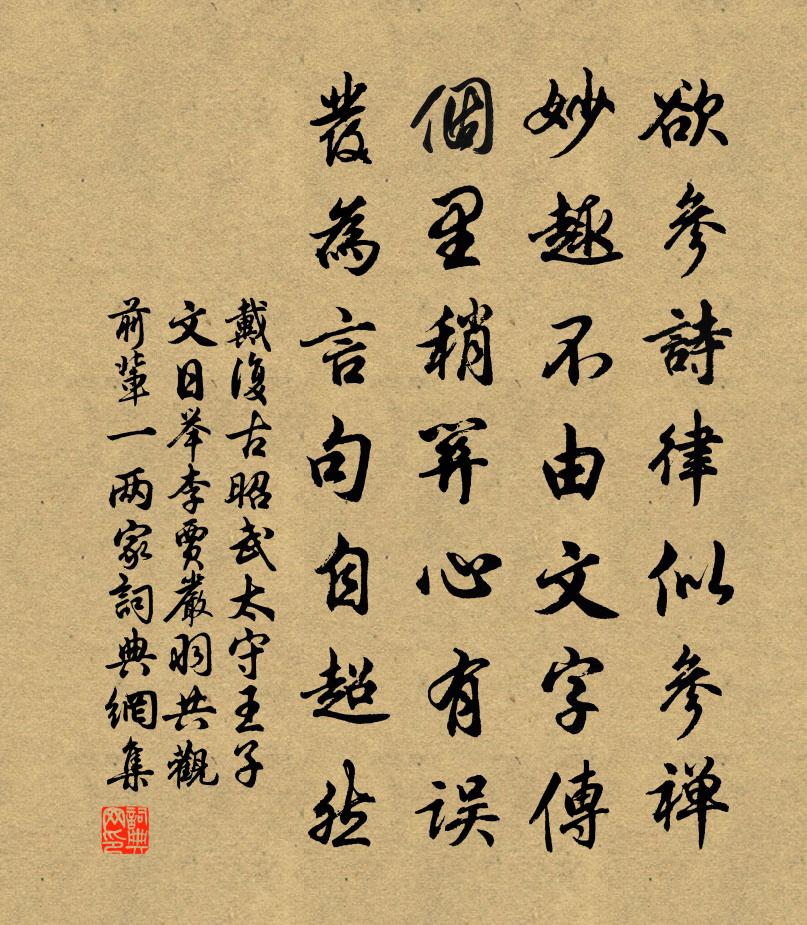 欲參詩律似參禪
妙趣不由文字傳
個里稍關心有误
發為言句自超然
戴復古昭武太守王子
文日举李賈嚴羽共觀
前輩一两家詞典網集
詞典网印